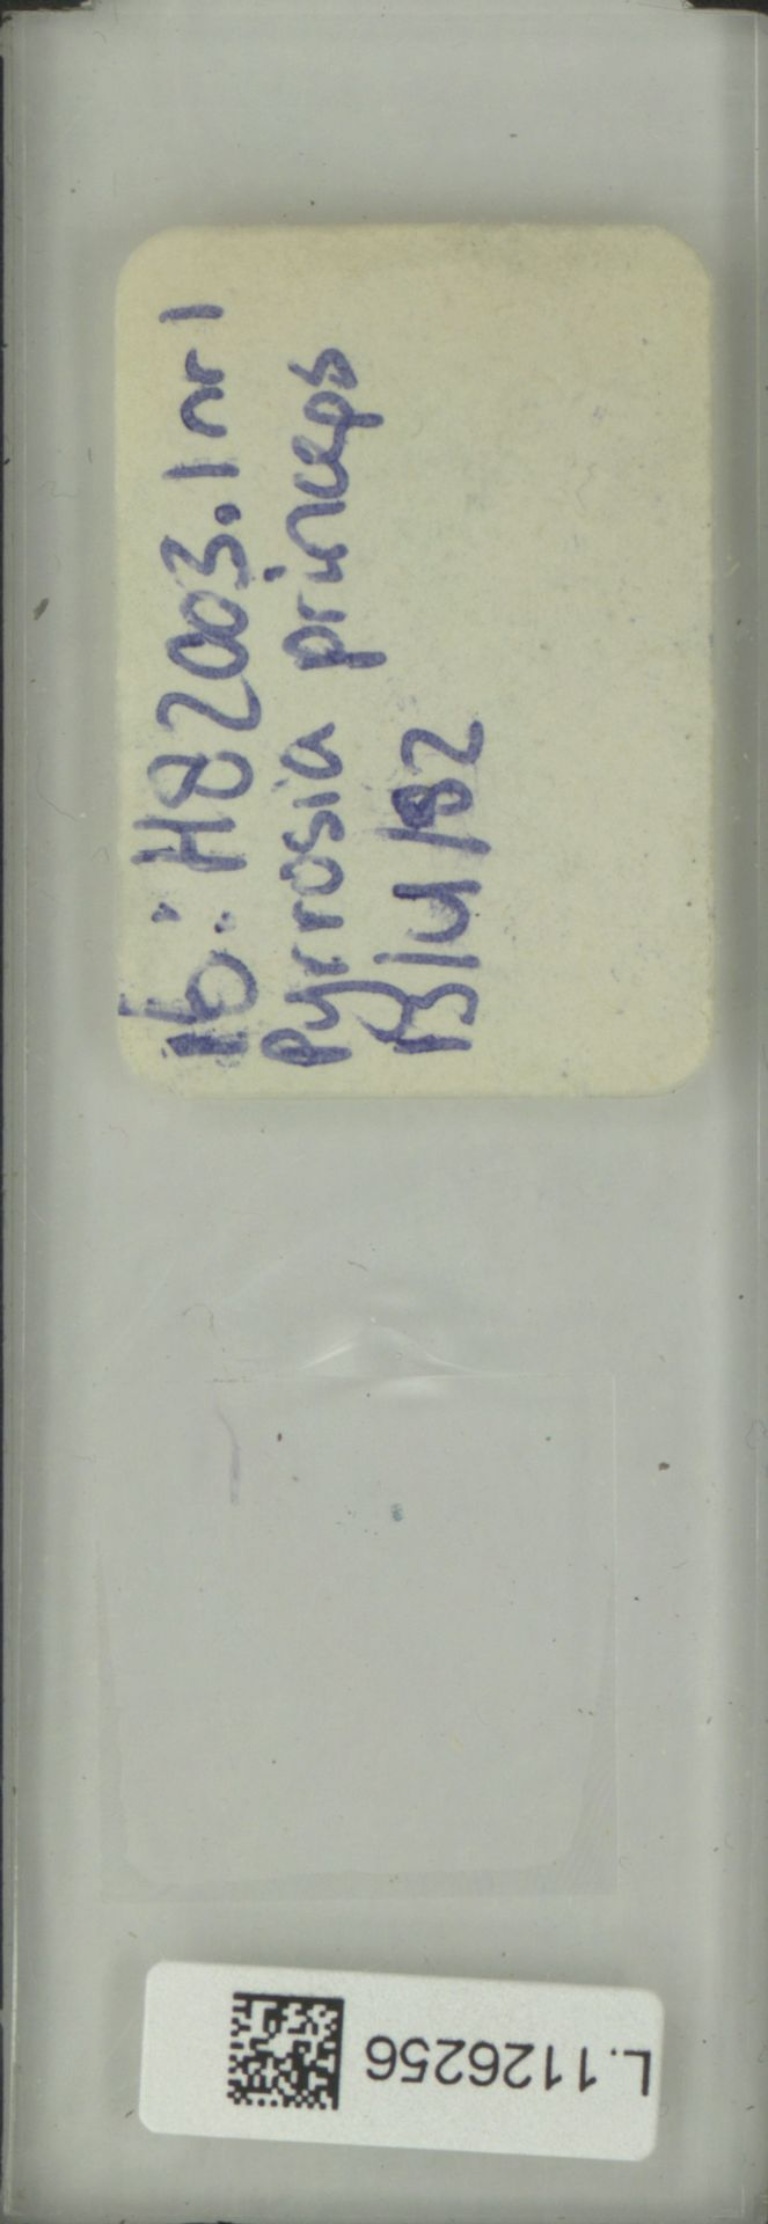 16: H82003.1 nr 1
Pyrrosia princeps
L.1126256